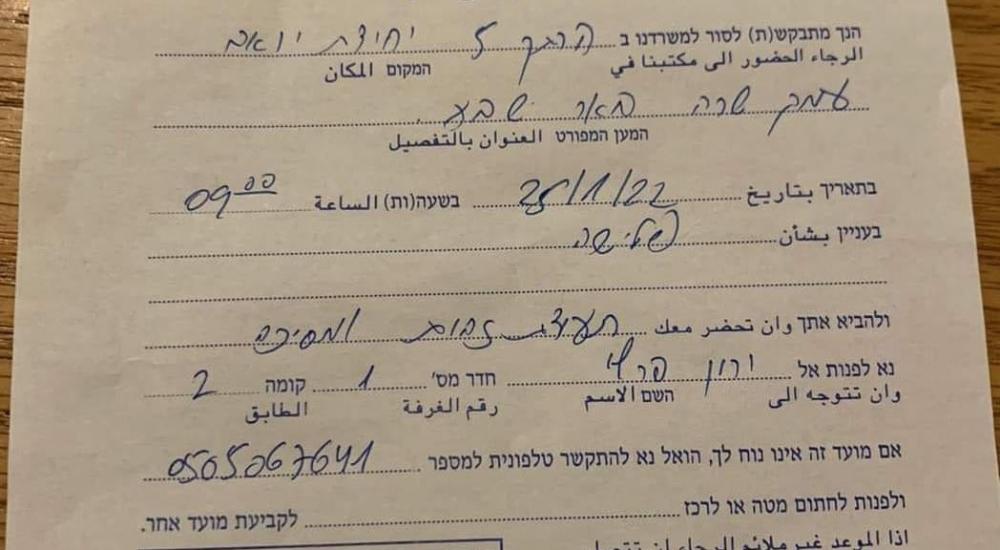 הנך מתבקש(ת) לסור למשרדנו ב הרתך 5 יחידת יואב
الرجاء الحضور الى مكتبنا في המקום المكان
עמק שרה באר שבע
המען המפורט العنوان بالتفصيل
בתאריך بتاريخ 25/1/22 בשעה(ות) الساعة 09:00
בעניין بشأن פלישה
ולהביא אתך وان تحضر معك תעודת זהות ומסמכים
נא לפנות אל ירון חדר מס' 1 קומה 2
وان تتوجه الى השם الاسم رقم الغرفة الطابق
אם מועד זה אינו נוח לך, הואל נא להתקשר טלפונית למספר 0505067641
ולפנות לחתום מטה או לרכז לקביעת מועד אחר.
اذا الموعد غير ملائم الرجاء ان